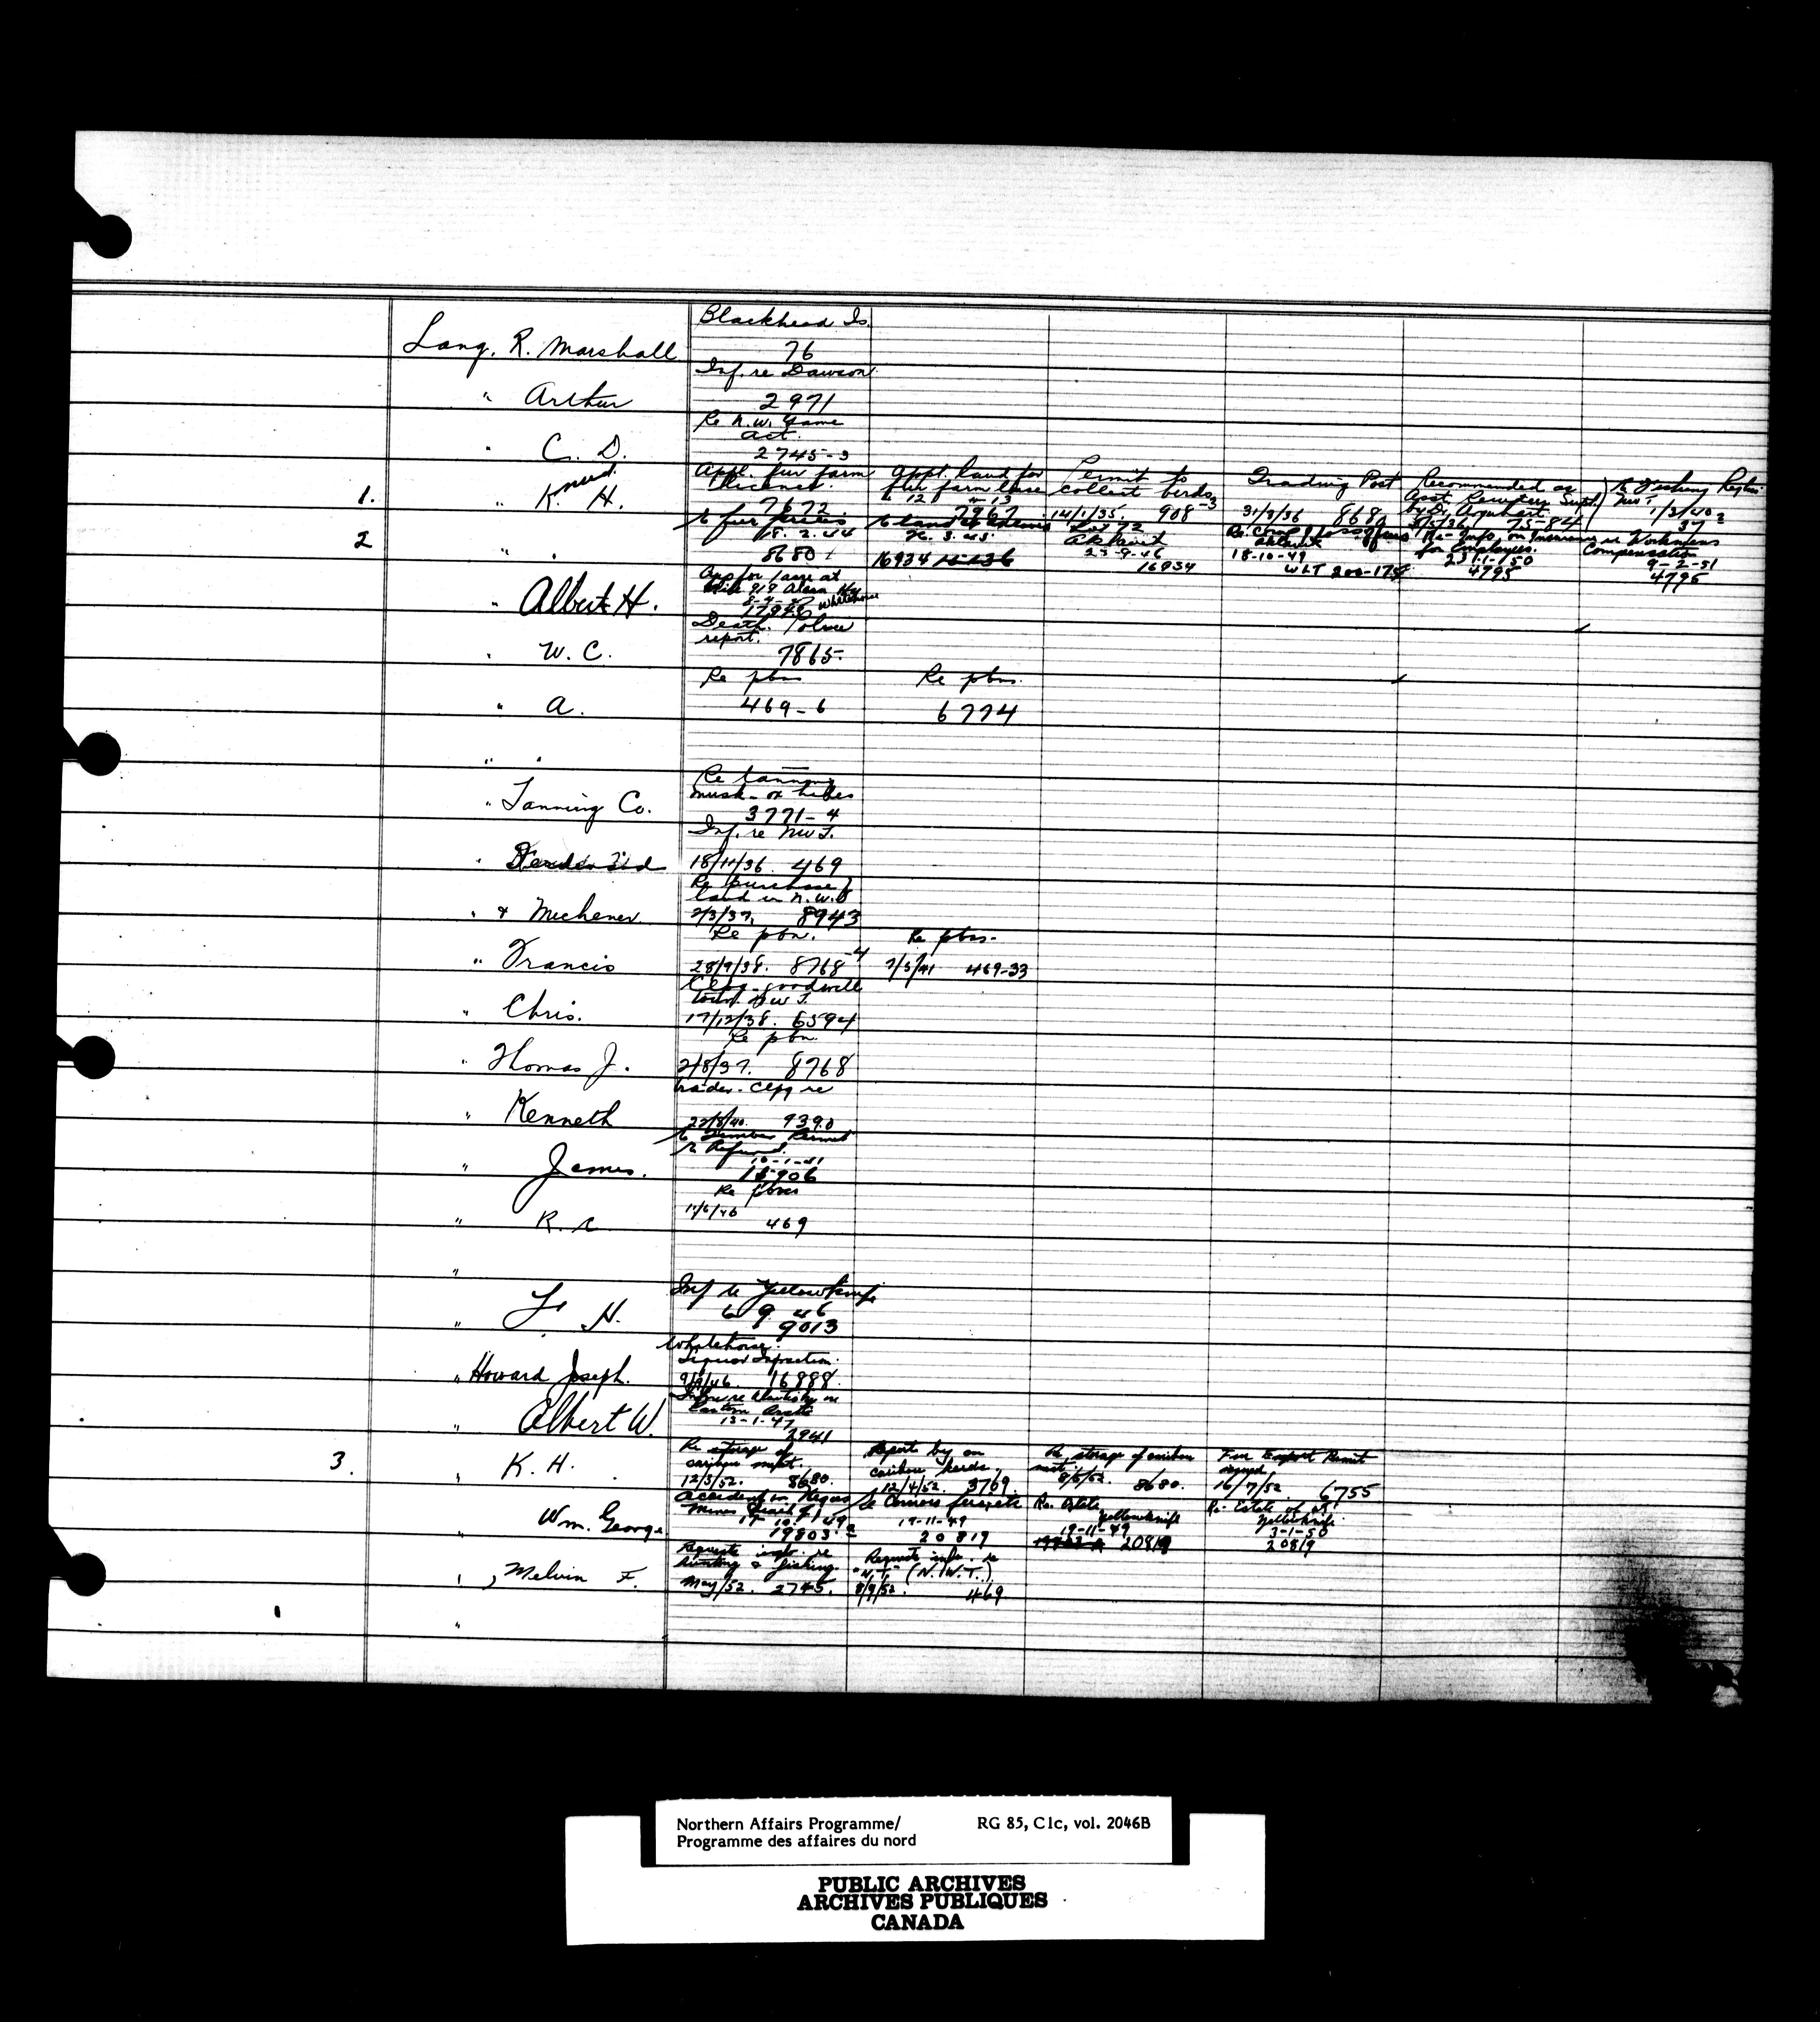 Blackhead Is.
Lang, R. Marshall 76
Inf. re Dawson
" Arthur 2971
Re N.W. Game
Act.
" C. D. 2745-3
1. " Knud H.
Appl. fur farm
license.
7672
Appl. land for
fur farm lease
7967
Permit to
collect birds
14/1/35. 908-3
Trading Post
31/3/36 8680
Recommended as
Asst. Reindeer Supt.
by Dr. Urquhart
8/5/36 75-84
NWT
1/2/40
37
2 " "
re fur
18.2.44
8680
16934
Lot 72
Aklavik
23-9-46
16934
Aklavik
18-10-49
Re-Info. on Insurance
for Employees.
4795
re Workmens
Compensation
9-2-51
4795
" Albert H.
App for lease at
Mile 919 Alcan Hwy
Whitehorse
Death. Police
report.
" W. C. 7865.
Re pbns Re pbns.
" A. 469-6 6774
" "
Re tanning
musk-ox hides
" Tanning Co. 3771-4
Inf. re NWT.
18/11/36 469
Re purchase of
land in N.W.T.
" & Michener 2/3/37. 8943
Re pbn. Re pbns.
" Francis 28/9/38. 8768-4 7/5/41 469-33
goodwill
tour NWT.
" Chris. 17/12/38. 6594
Re pbn.
" Thomas J. 2/8/37. 8768
trader
" Kenneth 22/8/40. 9390
Re Timber Permit
Re Refund.
10-1-41
" James. 15906
Re pbns
" R. C. 469
"
Inf re Yellowknife
6 9 46
9013
" H.
Whitehorse.
Liquor Infraction.
" Howard Joseph. 16888.
Eastern Arctic
13-1-47
" Albert W. 2941
3. " K. H.
Re storage of
caribou meat.
12/3/52. 8680.
Report by on
caribou herds.
12/4/52. 3769.
Re storage of caribou
meat.
8/5/52. 8680.
Fur Export Permit
signed
16/7/52. 6755
" Wm. George
Accident in Negus
Mines
17-10-49
19803
19-11-49
20819
Re. Estate
Yellowknife
19-11-49
20819
Re-Estate of at
Yellowknife
3-1-50
20819
" , Melvin F.
Requests info. re
hunting & fishing.
May/52. 2745.
Requests info. re
"N.T." (N.W.T.).
8/9/52. 469
"
Northern Affairs Programme/ RG 85, C1c, vol. 2046B
Programme des affaires du nord
PUBLIC ARCHIVES
ARCHIVES PUBLIQUES
CANADA